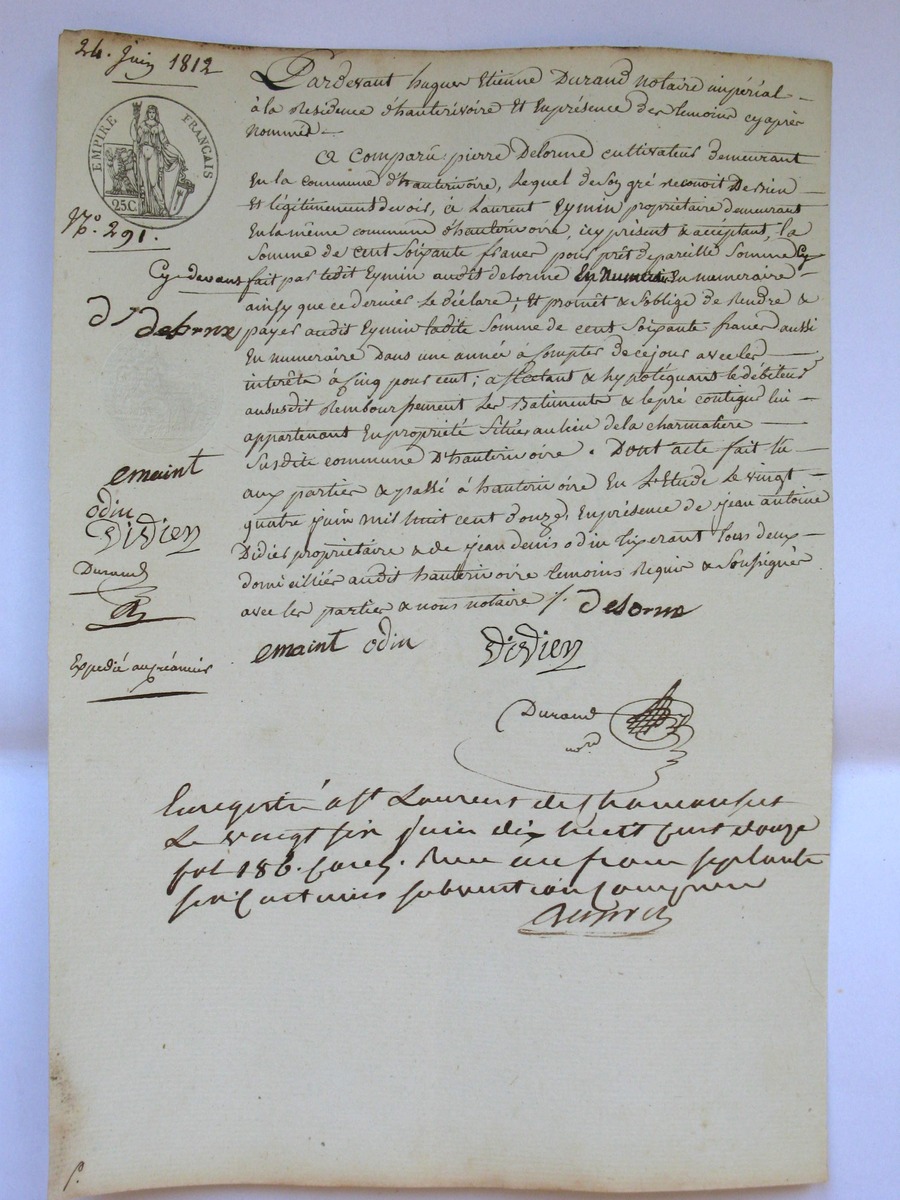 24. Juin 1812
EMPIRE FRANÇAIS
25.C.
N.º 291.
Pardevant hugues Etienne Durand notaire impérial
à la Residence d'hauterivoire et Enprésence des temoins cyaprès
nommés
a Comparu pierre Delorme cultivateur demeurant
En la commune d'hauterivoire, Lequel desongré reconoit Bien
Et légitimement devoir, à Laurent Eymin propriétaire demeurant
En la même commune d'hauterivoire, icyprésent & acceptant, la
Somme de cent soixante francs pour prêt depareille Somme Cy
Cy-devans fait par ledit Eymin audit delorme En numeraire
ainsy que ce dernier Le déclare; Et promet & s'oblige de Rendre &
payer audit Eymin ladite Somme de cent soixante francs aussi
En numeraire dans une année à compter decejour avec les
interêts à cinq pour cent; affectant & hypotéquant le débiteur
ausudit Remboursement Les Batiments & le pré contigus lui
appartenant Enpropriété Situés aulieu dela charmatière
Susdite commune D'hauterivoire. Dont acte fait lu
aux parties & passé à hauterivoire En l'Etude Le vingt
quatre juin mil huit cent douze, Enprésence de jean antoine
Didier propriétaire & de jean denis odin tixerant tous deux
domiciliés audit hauterivoire temoins Requis & Soussignés
avec les parties & nous notaire /. delorme
emaint odin Didier
Durand
no.re
D, delorme
emaint
odin
Didier
Durand
Expedié aucréancier
Enregistré à St Laurent de Chamousset
Le vingt six juin dix huit cent douze
fol 186. Reçu un franc septante
six centimes subvention comprise